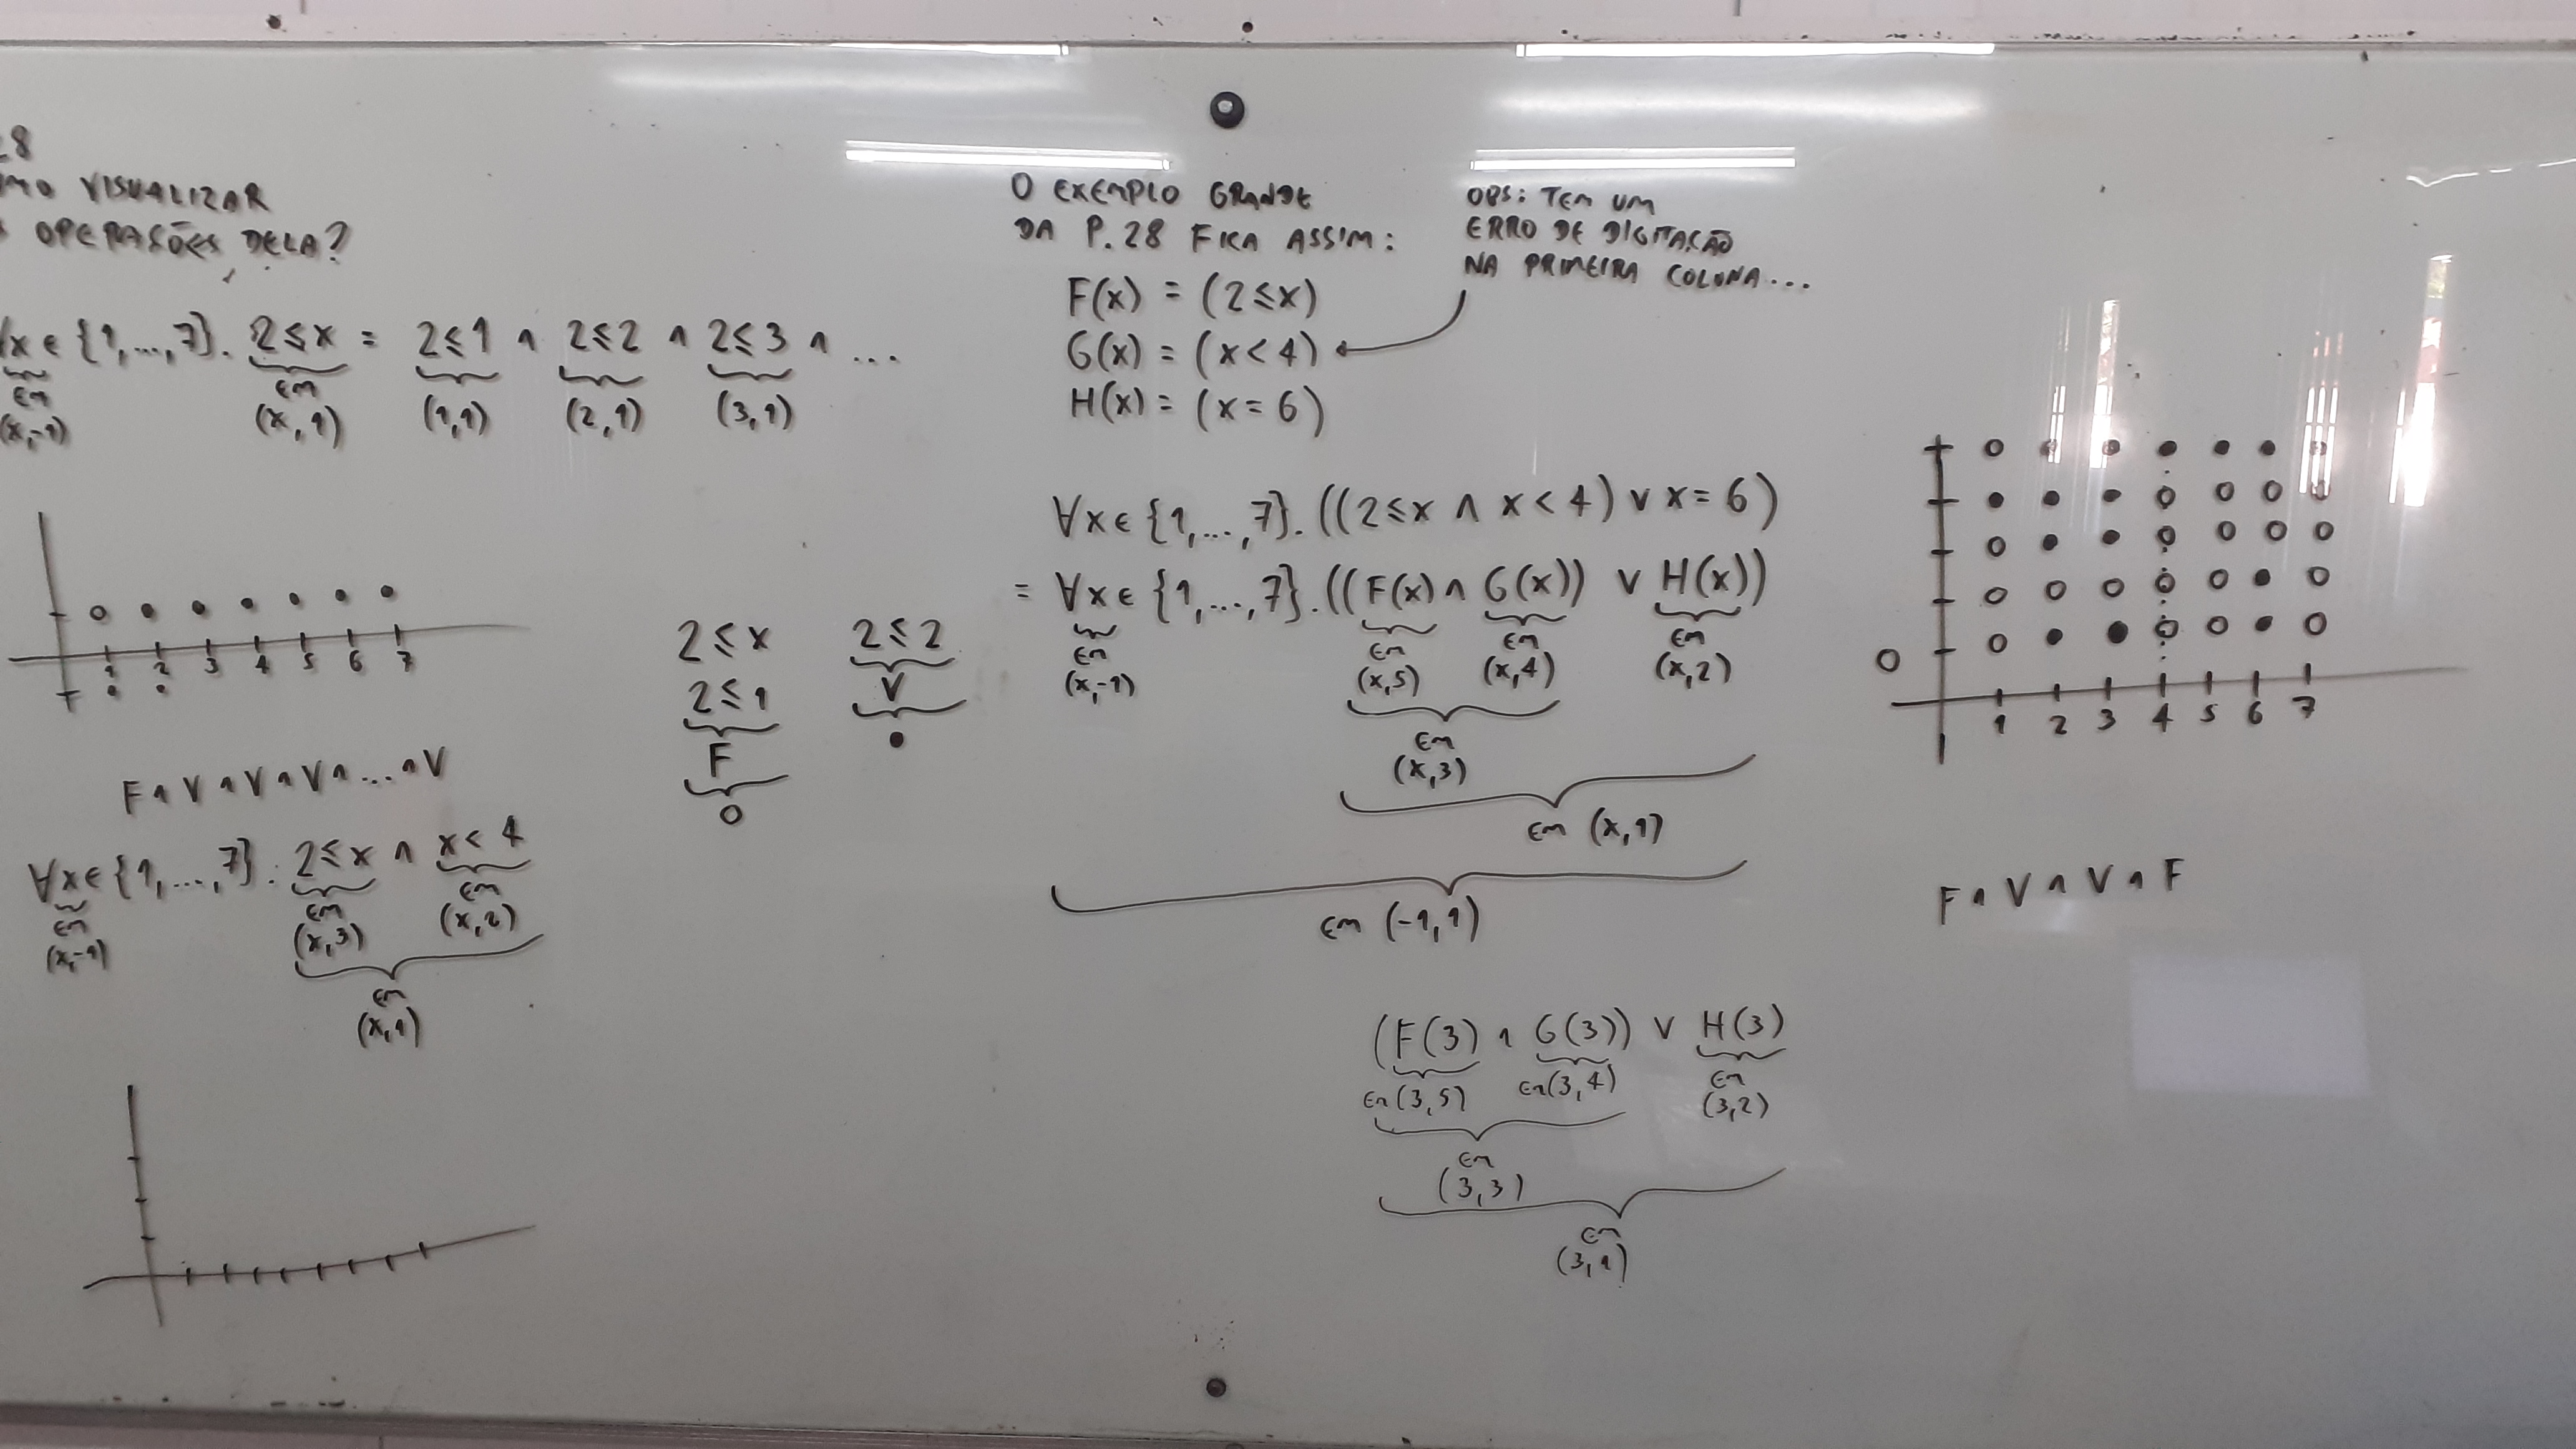 28
VISUALIZAR
OPERAÇÕES DELA?
∀x ∈ {1,...,7}. 2≤x = 2≤1 ∧ 2≤2 ∧ 2≤3 ∧ ...
em em
(x,-1) (x,1) (1,1) (2,1) (3,1)
1 2 3 4 5 6 7
F ∧ V ∧ V ∧ V ∧ ... ∧ V
∀x ∈ {1,...,7}. 2≤x ∧ x<4
em em em
(x,-1) (x,3) (x,2)
em
(x,1)
2≤x 2≤2
2≤1 V
F •
O
O EXEMPLO GRANDE
DA P.28 FICA ASSIM:
F(x) = (2≤x)
G(x) = (x<4)
H(x) = (x=6)
OBS: TEM UM
ERRO DE DIGITAÇÃO
NA PRIMEIRA COLUNA...
∀x ∈ {1,...,7}. ((2≤x ∧ x<4) ∨ x=6)
= ∀x ∈ {1,...,7}. ((F(x) ∧ G(x)) ∨ H(x))
em em em em
(x,-1) (x,5) (x,4) (x,2)
em
(x,3)
em (x,1)
em (-1,1)
(F(3) ∧ G(3)) ∨ H(3)
em (3,5) em (3,4) em
(3,2)
em
(3,3)
em
(3,1)
1 2 3 4 5 6 7
F ∧ V ∧ V ∧ F